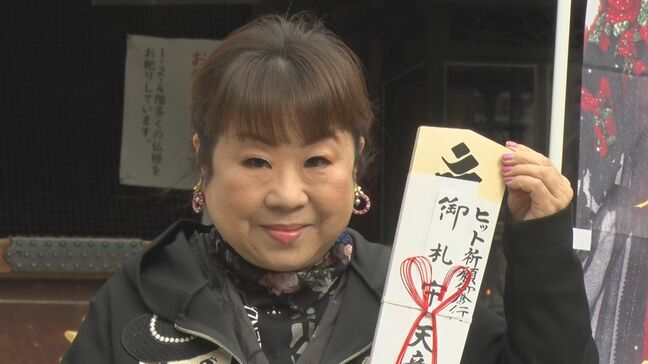 1・2・4階多くの仏様を
お祀りしています。
ヒット祈願修行
御札守
天